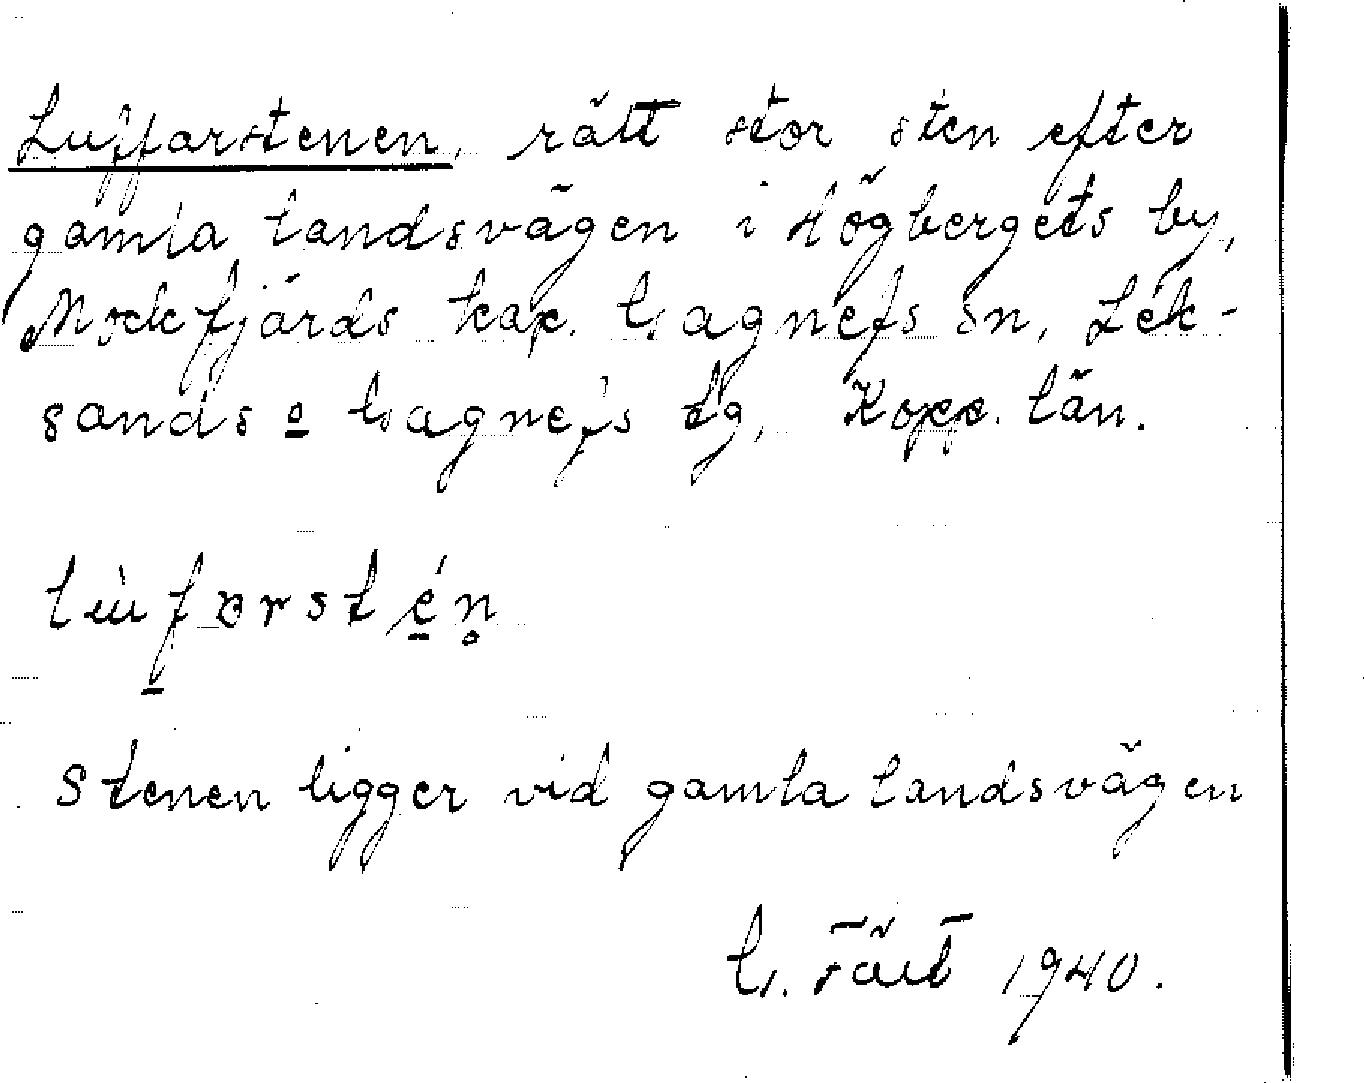 Luffarstenen, rätt stor sten efter
gamla landsvägen i Högbergets by,
Mockfjärds kap. Gagnefs sn, Lek-
sands o Gagnefs tg, Kopp. län.
Stenen ligger vid gamla landsvägen
G. 1940.